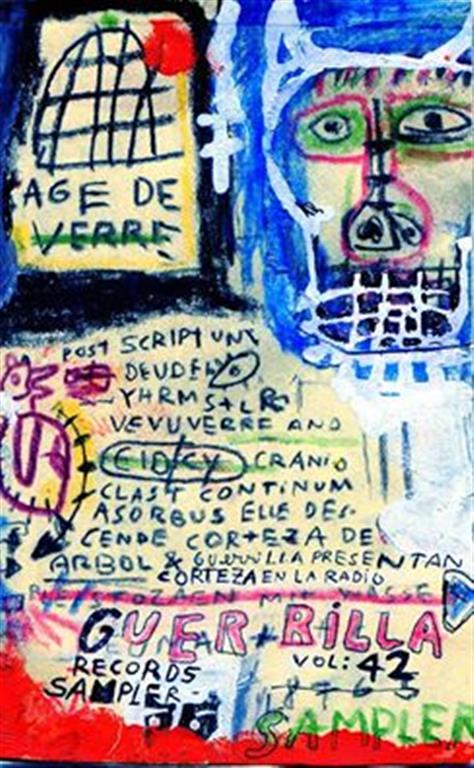 AGE DE
VERRE
POST SCRIPTUNT
VEVUVERRE AND
CRANIO
CLAST CONTINUM
ASORBUS ELLE DES-
CENDE CORTEZA DE
ARBOL & GUERRILLA PRESENTAN
CORTEZA EN LA RADIO
GUER RILLA
RECORDS VOL: 42
SAMPLER
SAMPLER